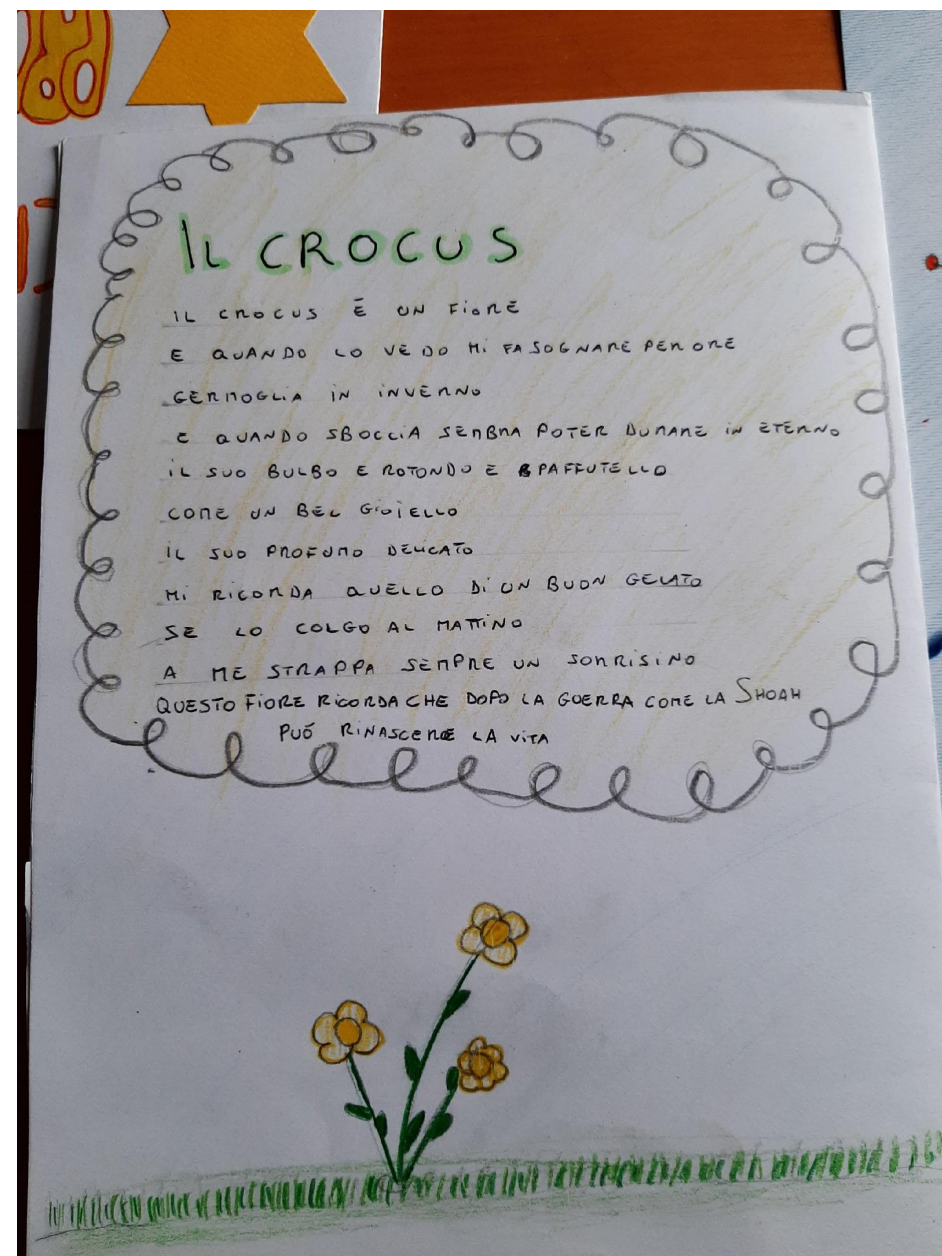 IL CROCUS
IL CROCUS È UN FIORE
E QUANDO LO VEDO MI FA SOGNARE PER ORE
GERMOGLIA IN INVERNO
E QUANDO SBOCCIA SEMBRA POTER DURARE IN ETERNO
IL SUO BULBO E ROTONDO E PAFFUTELLO
COME UN BEL GIOIELLO
IL SUO PROFUMO DELICATO
MI RICORDA QUELLO DI UN BUON GELATO
SE LO COLGO AL MATTINO
A ME STRAPPA SEMPRE UN SORRISINO
QUESTO FIORE RICORDA CHE DOPO LA GUERRA COME LA SHOAH
PUÓ RINASCERE LA VITA